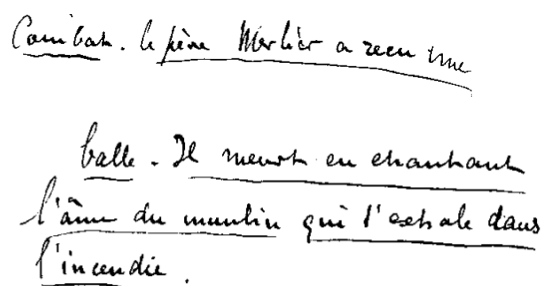 Combat. le père Merlier a reçu une
balle. Il meurt en chantant
l'âme du moulin qui s'exhale dans
l'incendie.